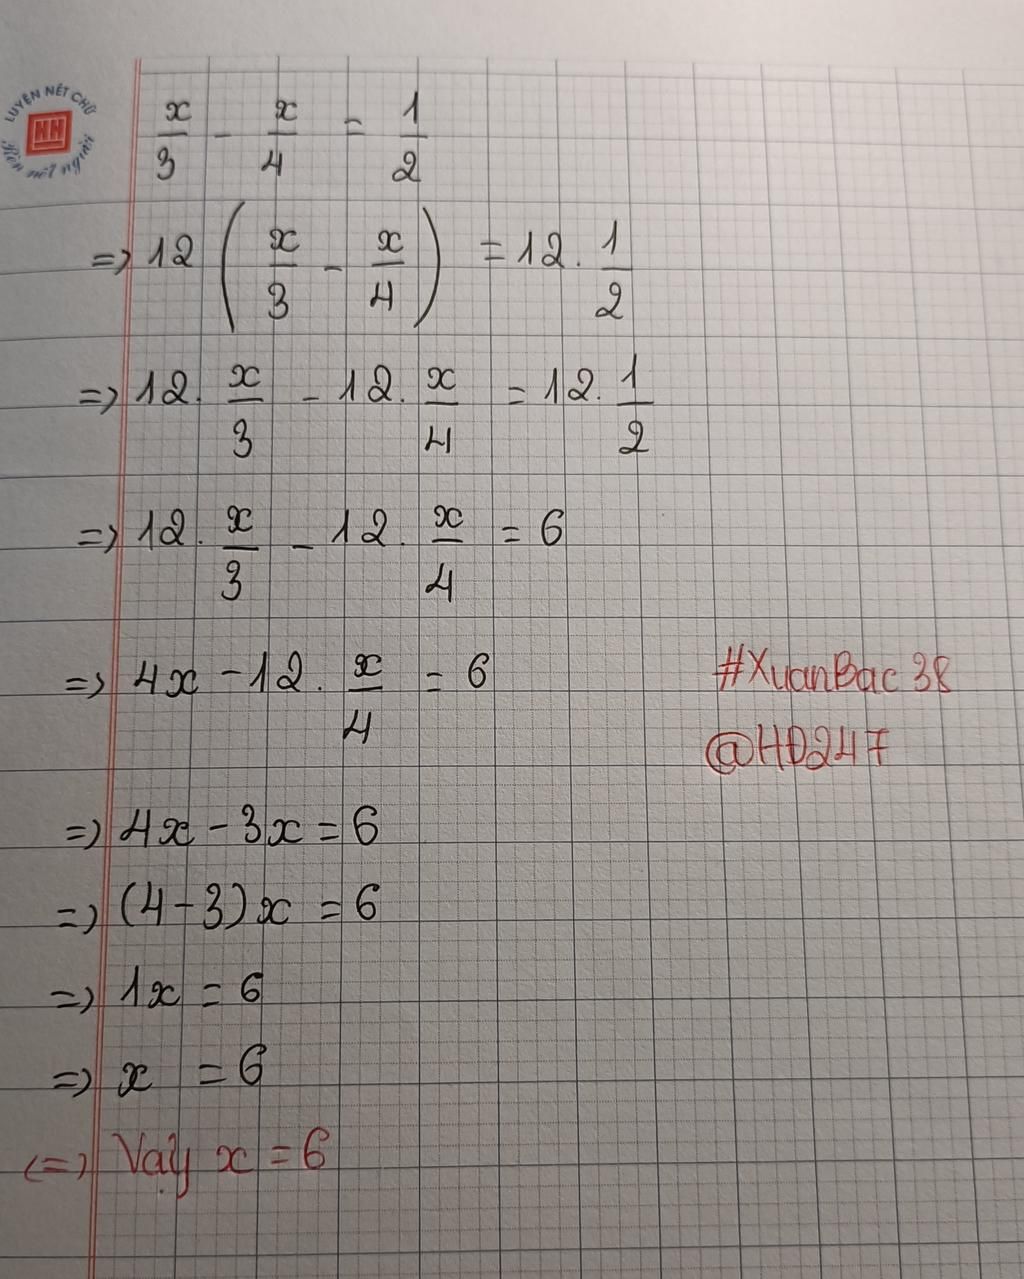 LUYỆN NÉT CHỮ
Rèn nết người
x/3 - x/4 = 1/2
=> 12 (x/3 - x/4) = 12 . 1/2
=> 12 . x/3 - 12 . x/4 = 12 . 1/2
=> 12 . x/3 - 12 . x/4 = 6
=> 4x - 12 . x/4 = 6
#XuanBac 38
@HĐ247
=> 4x - 3x = 6
=> (4-3)x = 6
=> 1x = 6
=> x = 6
<=> Vậy x = 6